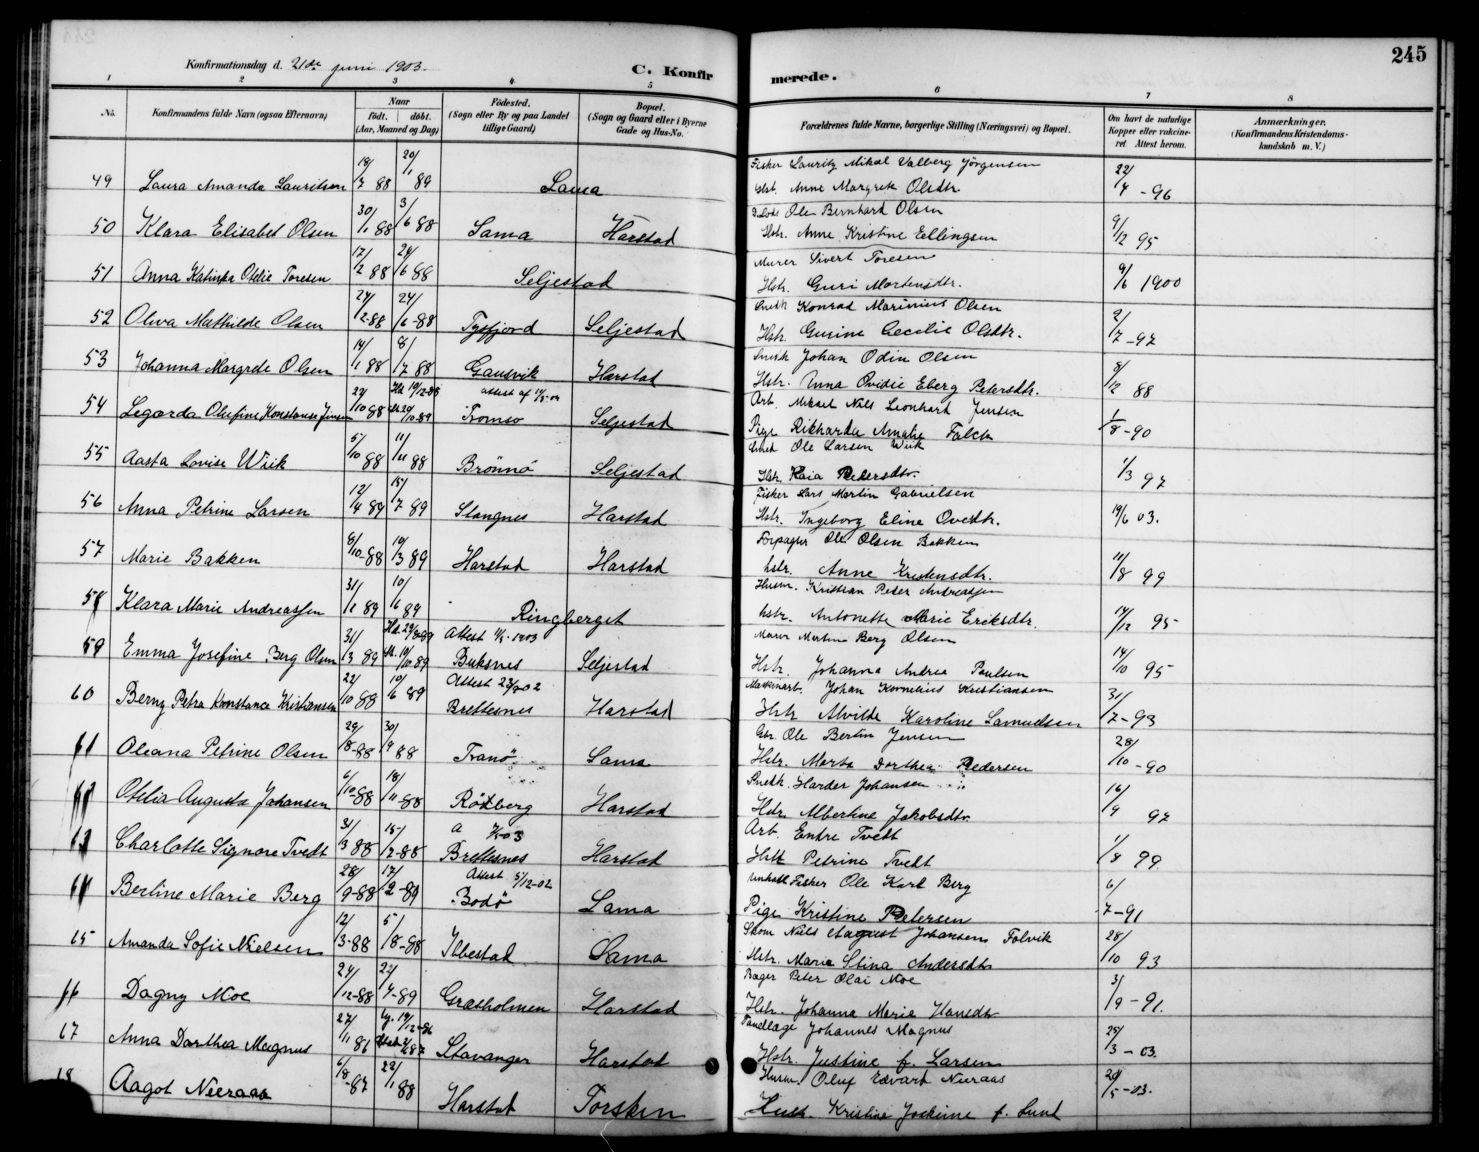 245
Konfirmationsdag d. 21de juni 1903.
C. Konfirmerede.
1 2 3 4 5 6 7 8
No. Konfirmandens fulde Navn (ogsaa Efternavn) Naar født. døbt. (Aar, Maaned og Dag) Fødested. (Sogn eller By og paa Landet tillige Gaard) Bopæl. (Sogn og Gaard eller i Byerne Gade og Hus-No. Forældrenes fulde Navne, borgerlige Stilling (Næringsvei) og Bopæl. Om havt de naturlige Kopper eller vaccineret. Attest herom. Anmærkninger. (Konfirmandens Kristendomskundskab m. V.)
49 Laura Amanda Lauritsen 18/7 88 20/1 89 Sama Fisker Lauritz Mikal Valberg Jörgensen
Hst. Anne Margrete Olsdtr. 22/4 - 96
50 Klara Elisabet Olsen 30/1 88 3/6 88 Sama Harstad Ole Bernhard Olsen
Hstr. Anne Kristine Ellingsen 9/12 95
51 Anna Katinka Otelie Toresen 17/2 88 24/6 88 Seljestad Murer Sivert Toresen
Hstr. Guri Mortensdtr. 9/6 1900
52 Oliva Mathilde Olsen 24/2-88 24/6-88 Tysfjord Seljestad Snedk Konrad Marinius Olsen
Hstr. Gusine Cecilie Olsdtr. 2/7-97
53 Johanna Margrete Olsen 14/1 88 8/7 88 Gausvik Harstad Snedk Johan Odin Olsen
Hstr. Anna Ovidie Eberg Petersdtr. 8/12 88
54 Legarda Olufine Konstanse Jensen 10 88 Hd 19/12-88 10/89 attest af Tromsø Seljestad Arb. Mikael Nils Leonhard Jensen
Pige Rikharda Amalie Falch 1/8-90
55 Aasta Lovise Wiik 5/10 88 11/11 88 Brönnö Seljestad Smed Ole Larsen Wiik
Hstr. Kaia Petersdtr. 1/3 97
56 Anna Petrine Larsen 12/4 89 15/7 89 Stangnes Harstad Fisker Lars Martin Gabrielsen
Hstr. Ingeborg Eline Ovedtr. 19/6 03.
57 Marie Bakken 8/10-88 10/3 89 Harstad Harstad Forpagter Ole Olsen Bakken
hstr. Anne Kristensdtr. 11/8 99
58 Klara Marie Andreassen 31/1 89 10/6 89 Ringberget Husm. Kristian Peder Andreassen
hstr. Antonette Marie Eriksdtr. 14/12 95
59 Emma Josefine Berg Olsen 31/3 89 10/89 Attest 1903 Buksnes Seljestad Murer Martin Berg Olsen
Hstr. Johanna Andrea Paulsen 14/10 95
60 Berny Petra Konstance Kristiansen 22/10 88 10/6 89 Attest Brettesnes Harstad Maskinarb. Johan Kornelius Kristiansen
Hstr. Alvilde Karoline Samuelsen 31/7-93
61 Oleana Petrine Olsen 29/8-88 30/9 88 Tranö Sama Gbr. Ole Bertin Jensen
Hstr. Marta Dorthea Pedersen 28/10-90
Otelia Augusta Johansen 6/10-88 18/11-88 Rödberg Harstad Snedk. Harder Johansen
Hstr. Albertine Jakobsdtr. 16/9 97
63 Charlotte Signore Tvedt 31/3 88 15/2-88 Brettesnes Harstad Arb. Endre Tvedt
Hstr Petrine Tvedt 1/8 99.
Berline Marie Berg 28/9-88 17/2-89 Attest 5/12-02 Bodö Sama Unkarl Fisker Ole Karl Berg
Pige Kristine Petersen 6/7-91
65 Amanda Sofie Nielsen 12/3-88 5/8-88 Ibestad Sama Skom Nils August Johansen Folvik
Hstr. Marie Stina Andersdtr 28/10 93
66 Dagny Moe 24/12-88 22/4-89 Græsholmen Harstad Bager Peter Olai Moe
Hstr. Johanna Marie Hansdtr 3/9-91.
67 Anna Dorthea Magnus 27/11 86 Stavanger Harstad Tandlæge Johannes Magnus
Hstr. Justine f. Larsen 25/3-03.
Aagot Nieraas 6/8-87 22/1 88 Harstad Torsken Husm. Oluf Edvard Nieraas
Hustr. Kristine Joakime f. Lund 20/5-03.